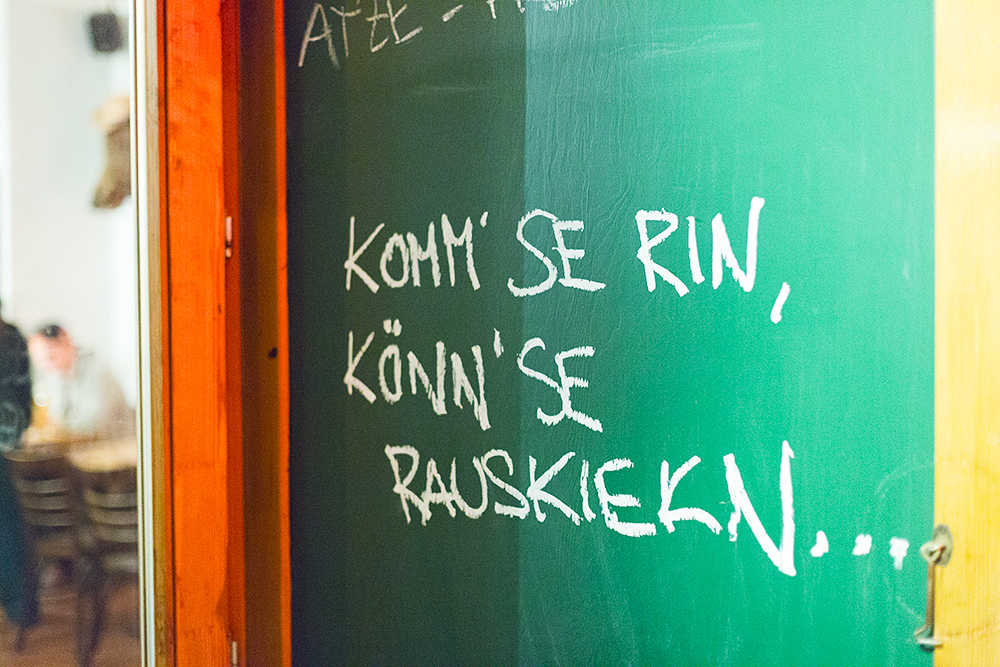 ATZE -
KOMM' SE RIN,
KÖNN' SE
RAUSKIEKN...